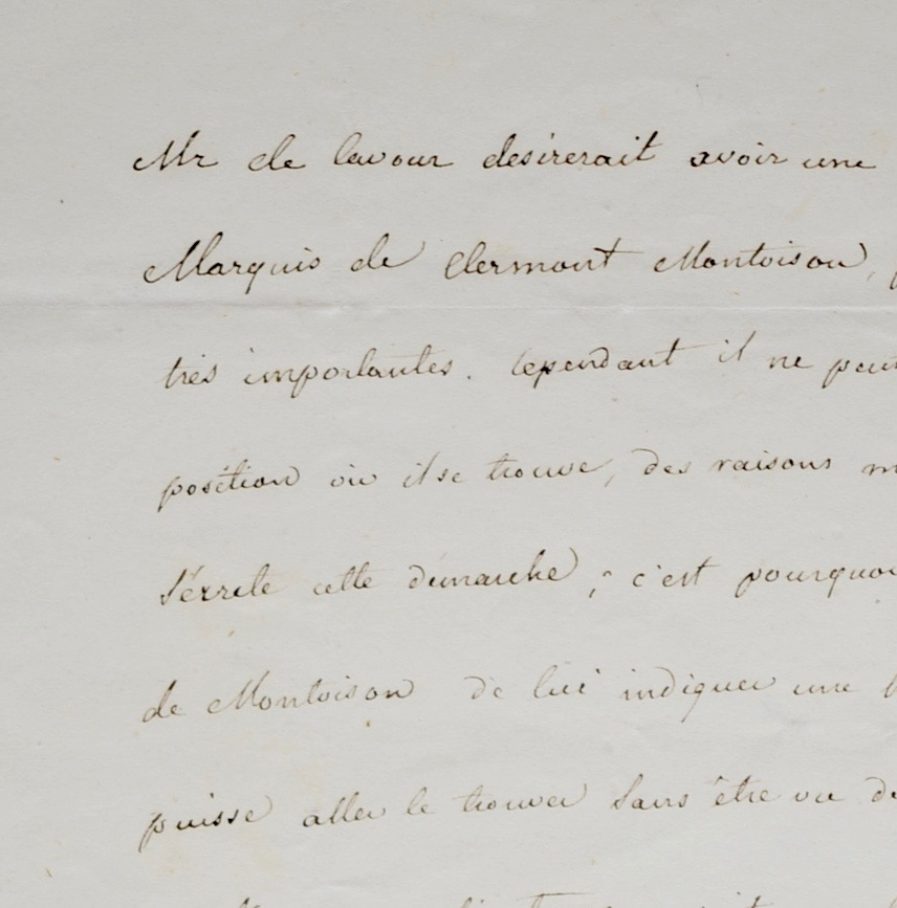 Mr de lavour desirerait avoir une
Marquis de Clermont Montoison,
très importantes. Cependant il ne peut
position où il se trouve, des raisons
cette démarche, c'est pourquoi
de Montoison de lui indiquer une
puisse aller le trouver sans être vu